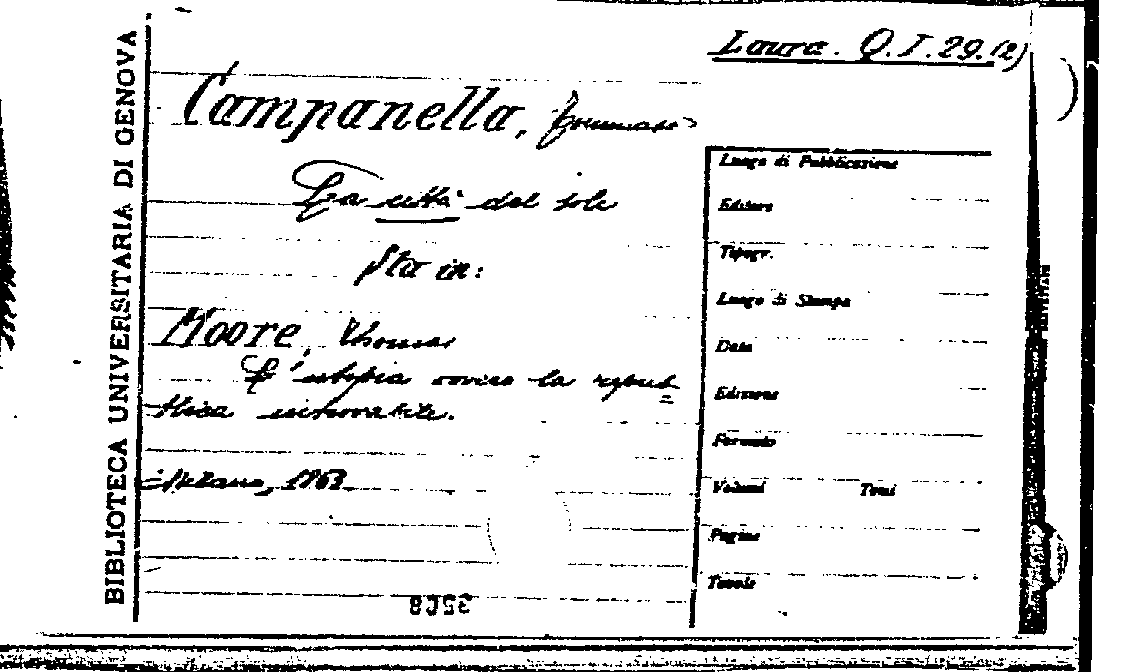 Laura. Q. I. 29. (2)
BIBLIOTECA UNIVERSITARIA DI GENOVA
Campanella, Tommaso
La città del sole
Sta in:
Moore, Thomas
L'utopia ovvero la repub=
blica introvabile.
Milano, 1863
Luogo di Pubblicazione
Editore
Tipogr.
Luogo di Stampa
Data
Edizione
Formato
Volumi Tomi
Pagine
Tavole